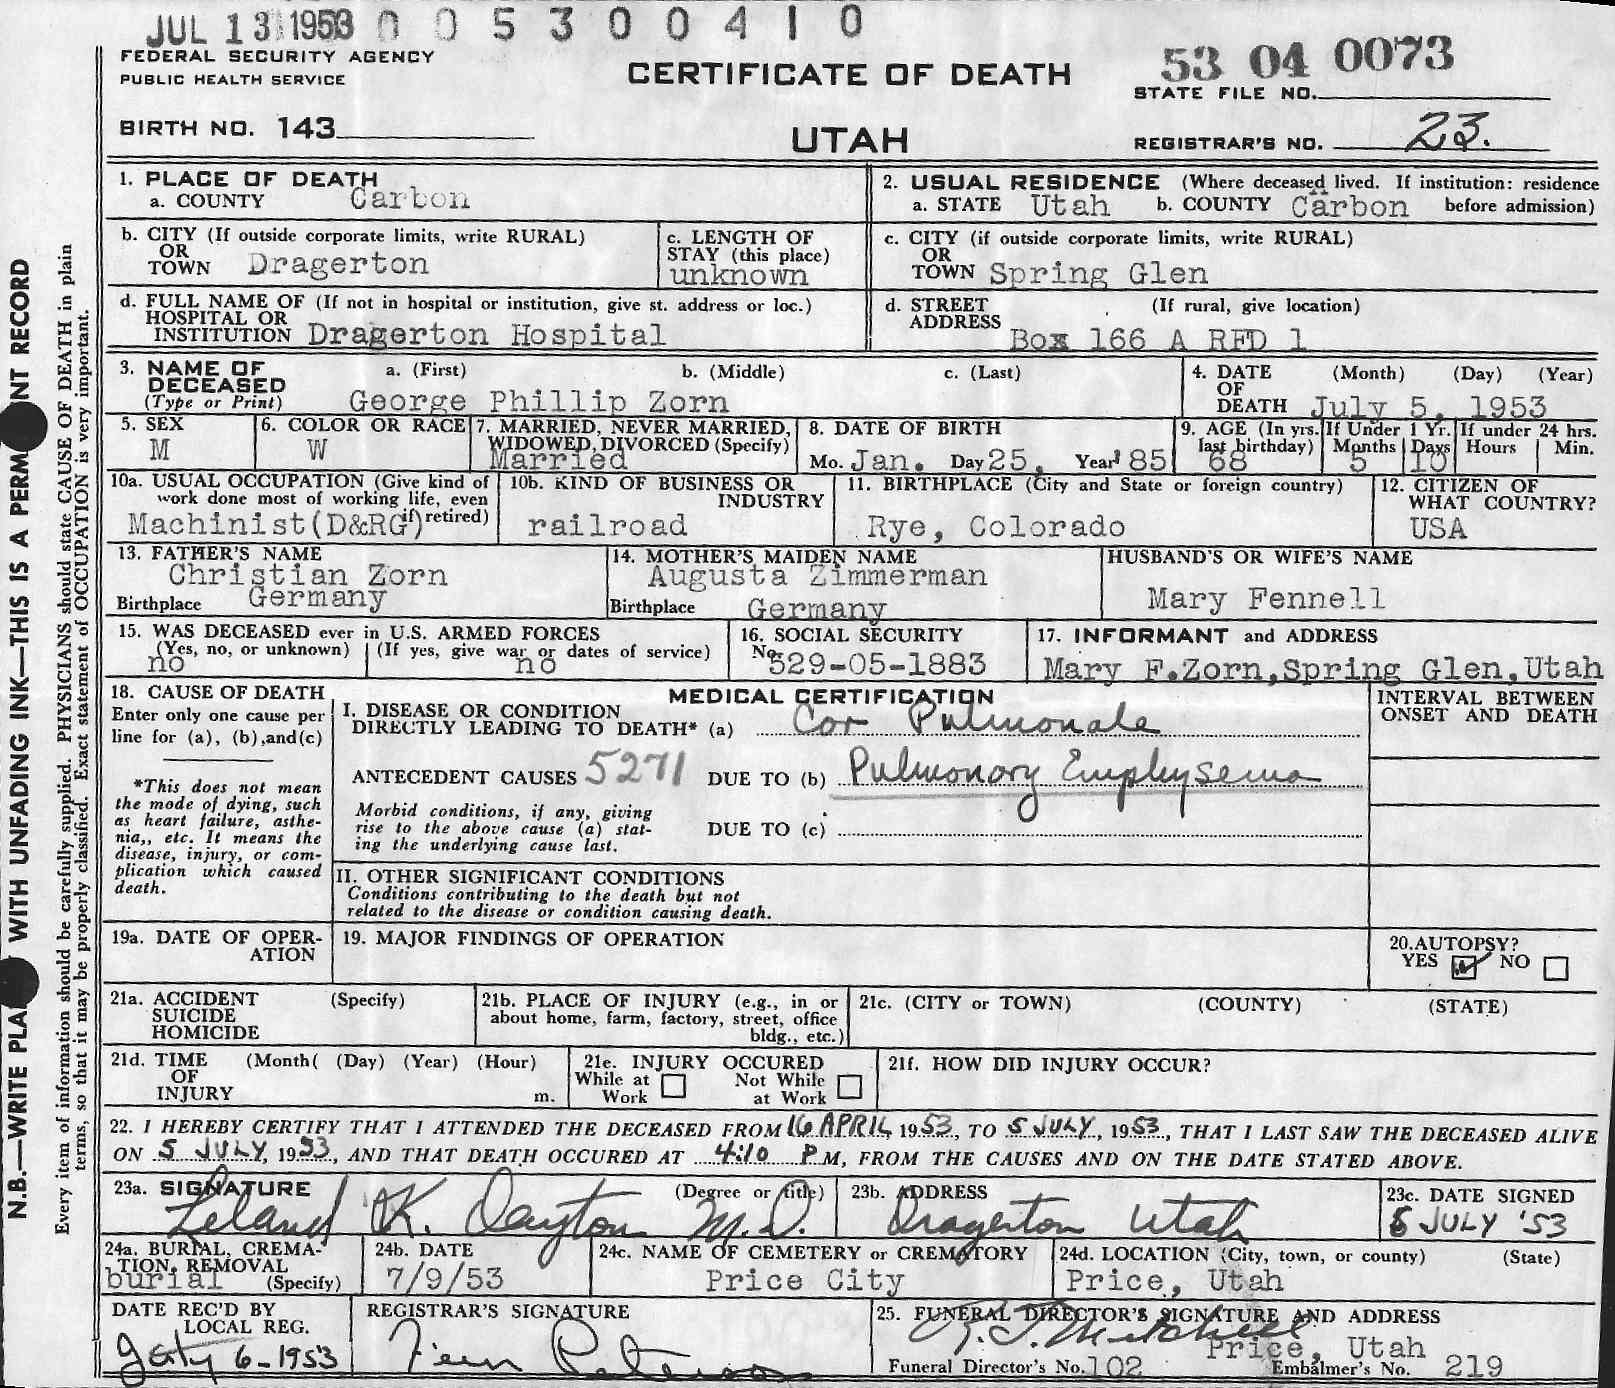 JUL 13 1953 0 0 5 3 0 0 4 1 0
FEDERAL SECURITY AGENCY
PUBLIC HEALTH SERVICE
CERTIFICATE OF DEATH
53 04 0073
STATE FILE NO.
BIRTH NO. 143
UTAH
REGISTRAR'S NO. 23.
1. PLACE OF DEATH
a. COUNTY Carbon
2. USUAL RESIDENCE (Where deceased lived. If institution: residence
a. STATE Utah b. COUNTY Carbon before admission)
b. CITY (If outside corporate limits, write RURAL)
OR
TOWN Dragerton
c. LENGTH OF
STAY (this place)
unknown
c. CITY (if outside corporate limits, write RURAL)
OR
TOWN Spring Glen
d. FULL NAME OF (If not in hospital or institution, give st. address or loc.)
HOSPITAL OR
INSTITUTION Dragerton Hospital
d. STREET (If rural, give location)
ADDRESS
Box 166 A RFD 1
3. NAME OF a. (First) b. (Middle) c. (Last)
DECEASED
(Type or Print) George Phillip Zorn
4. DATE (Month) (Day) (Year)
OF
DEATH July 5, 1953
5. SEX
M
6. COLOR OR RACE
W
7. MARRIED, NEVER MARRIED,
WIDOWED, DIVORCED (Specify)
Married
8. DATE OF BIRTH
Mo. Jan. Day 25, Year '85
9. AGE (In yrs. last birthday)
68
If Under 1 Yr.
Months Days
5 10
If under 24 hrs.
Hours Min.
10a. USUAL OCCUPATION (Give kind of
work done most of working life, even
if retired)
Machinist(D&RG)
10b. KIND OF BUSINESS OR
INDUSTRY
railroad
11. BIRTHPLACE (City and State or foreign country)
Rye, Colorado
12. CITIZEN OF
WHAT COUNTRY?
USA
13. FATHER'S NAME
Christian Zorn
Birthplace Germany
14. MOTHER'S MAIDEN NAME
Augusta Zimmerman
Birthplace Germany
HUSBAND'S OR WIFE'S NAME
Mary Fennell
15. WAS DECEASED ever in U.S. ARMED FORCES
(Yes, no, or unknown) (If yes, give war or dates of service)
no no
16. SOCIAL SECURITY
No. 529-05-1883
17. INFORMANT and ADDRESS
Mary F.Zorn,Spring Glen,Utah
18. CAUSE OF DEATH
Enter only one cause per
line for (a), (b),and(c)
*This does not mean
the mode of dying, such
as heart failure, asthe-
nia,, etc. It means the
disease, injury, or com-
plication which caused
death.
MEDICAL CERTIFICATION
I. DISEASE OR CONDITION
DIRECTLY LEADING TO DEATH* (a) Cor Pulmonale
ANTECEDENT CAUSES 5271 DUE TO (b) Pulmonary Emphysema
Morbid conditions, if any, giving
rise to the above cause (a) stat-
ing the underlying cause last.
DUE TO (c)
II. OTHER SIGNIFICANT CONDITIONS
Conditions contributing to the death but not
related to the disease or condition causing death.
INTERVAL BETWEEN
ONSET AND DEATH
19a. DATE OF OPER-
ATION
19. MAJOR FINDINGS OF OPERATION
20.AUTOPSY?
YES NO
21a. ACCIDENT (Specify)
SUICIDE
HOMICIDE
21b. PLACE OF INJURY (e.g., in or
about home, farm, factory, street, office
bldg., etc.)
21c. (CITY or TOWN) (COUNTY) (STATE)
21d. TIME (Month( (Day) (Year) (Hour)
OF
INJURY m.
21e. INJURY OCCURED
While at Not While
Work at Work
21f. HOW DID INJURY OCCUR?
22. I HEREBY CERTIFY THAT I ATTENDED THE DECEASED FROM 16 APRIL 1953, TO 5 JULY, 1953, THAT I LAST SAW THE DECEASED ALIVE
ON 5 JULY, 1953, AND THAT DEATH OCCURED AT 4:10 P M, FROM THE CAUSES AND ON THE DATE STATED ABOVE.
23a. SIGNATURE (Degree or title)
Leland K. Dayton M.D.
23b. ADDRESS
Dragerton Utah
23c. DATE SIGNED
5 JULY '53
24a. BURIAL, CREMA-
TION, REMOVAL
burial (Specify)
24b. DATE
7/9/53
24c. NAME OF CEMETERY or CREMATORY
Price City
24d. LOCATION (City, town, or county) (State)
Price, Utah
DATE REC'D BY
LOCAL REG.
July 6-1953
REGISTRAR'S SIGNATURE
25. FUNERAL DIRECTOR'S SIGNATURE AND ADDRESS
Mitchell
Price, Utah
Funeral Director's No. 102 Embalmer's No. 219
N.B.—WRITE WITH UNFADING INK—THIS IS A RECORD
Every item of information should be carefully supplied. PHYSICIANS should state CAUSE OF DEATH in plain
terms, so that it may be properly classified. Exact statement of OCCUPATION is very important.